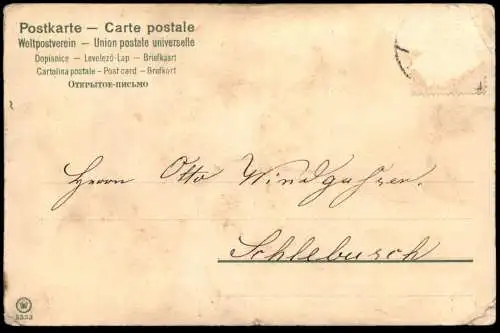 Postkarte — Carte postale
Weltpostverein — Union postale universelle
Dopisnice — Levelező-Lap — Briefkaart
Cartolina postale — Post card — Brefkort
Открытое письмо
Herrn Otto Windgassen.
Schlebusch